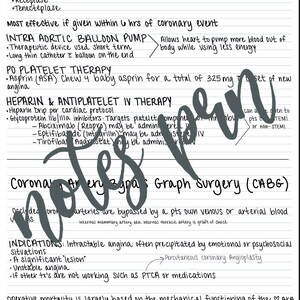 - Tenecteplase
Most effective if given within 6 hrs of coronary event
INTRA AORTIC BALLOON PUMP
Allows heart to pump more blood out of body while using less energy
- Therapeutic device used short term
- Long thin catheter & balloon on the end
PO PLATELET THERAPY
- Aspirin (ASA) chew 4 baby asprin for a total of 325mg of new angina.
HEPARIN & ANTIPLATELET IV THERAPY
- Heparin Drip per cardiac protocol
- Glycoprotein IIb/IIIa inhibitors: Targets platelet
- Abciximab (Reopro) may be
- Eptifibatide (Integrilin) may be IV
- Tirofiban (Aggrastat) may
pts w/ STEMI or non-STEMI
notes prn
Coronary Artery Bypass Graph Surgery (CABG)
arteries are bypassed by a pts own venous or arterial blood
internal mammary artery
INDICATIONS: Intractable angina, often precipitated by emotional or psychosocial situations
- A significant "lesion"
Percutaneous coronary Angioplasty
- Unstable angina
- If other tx's are not working such as PTCA or medications
operative mortality is largely based on the mechanical functioning of the